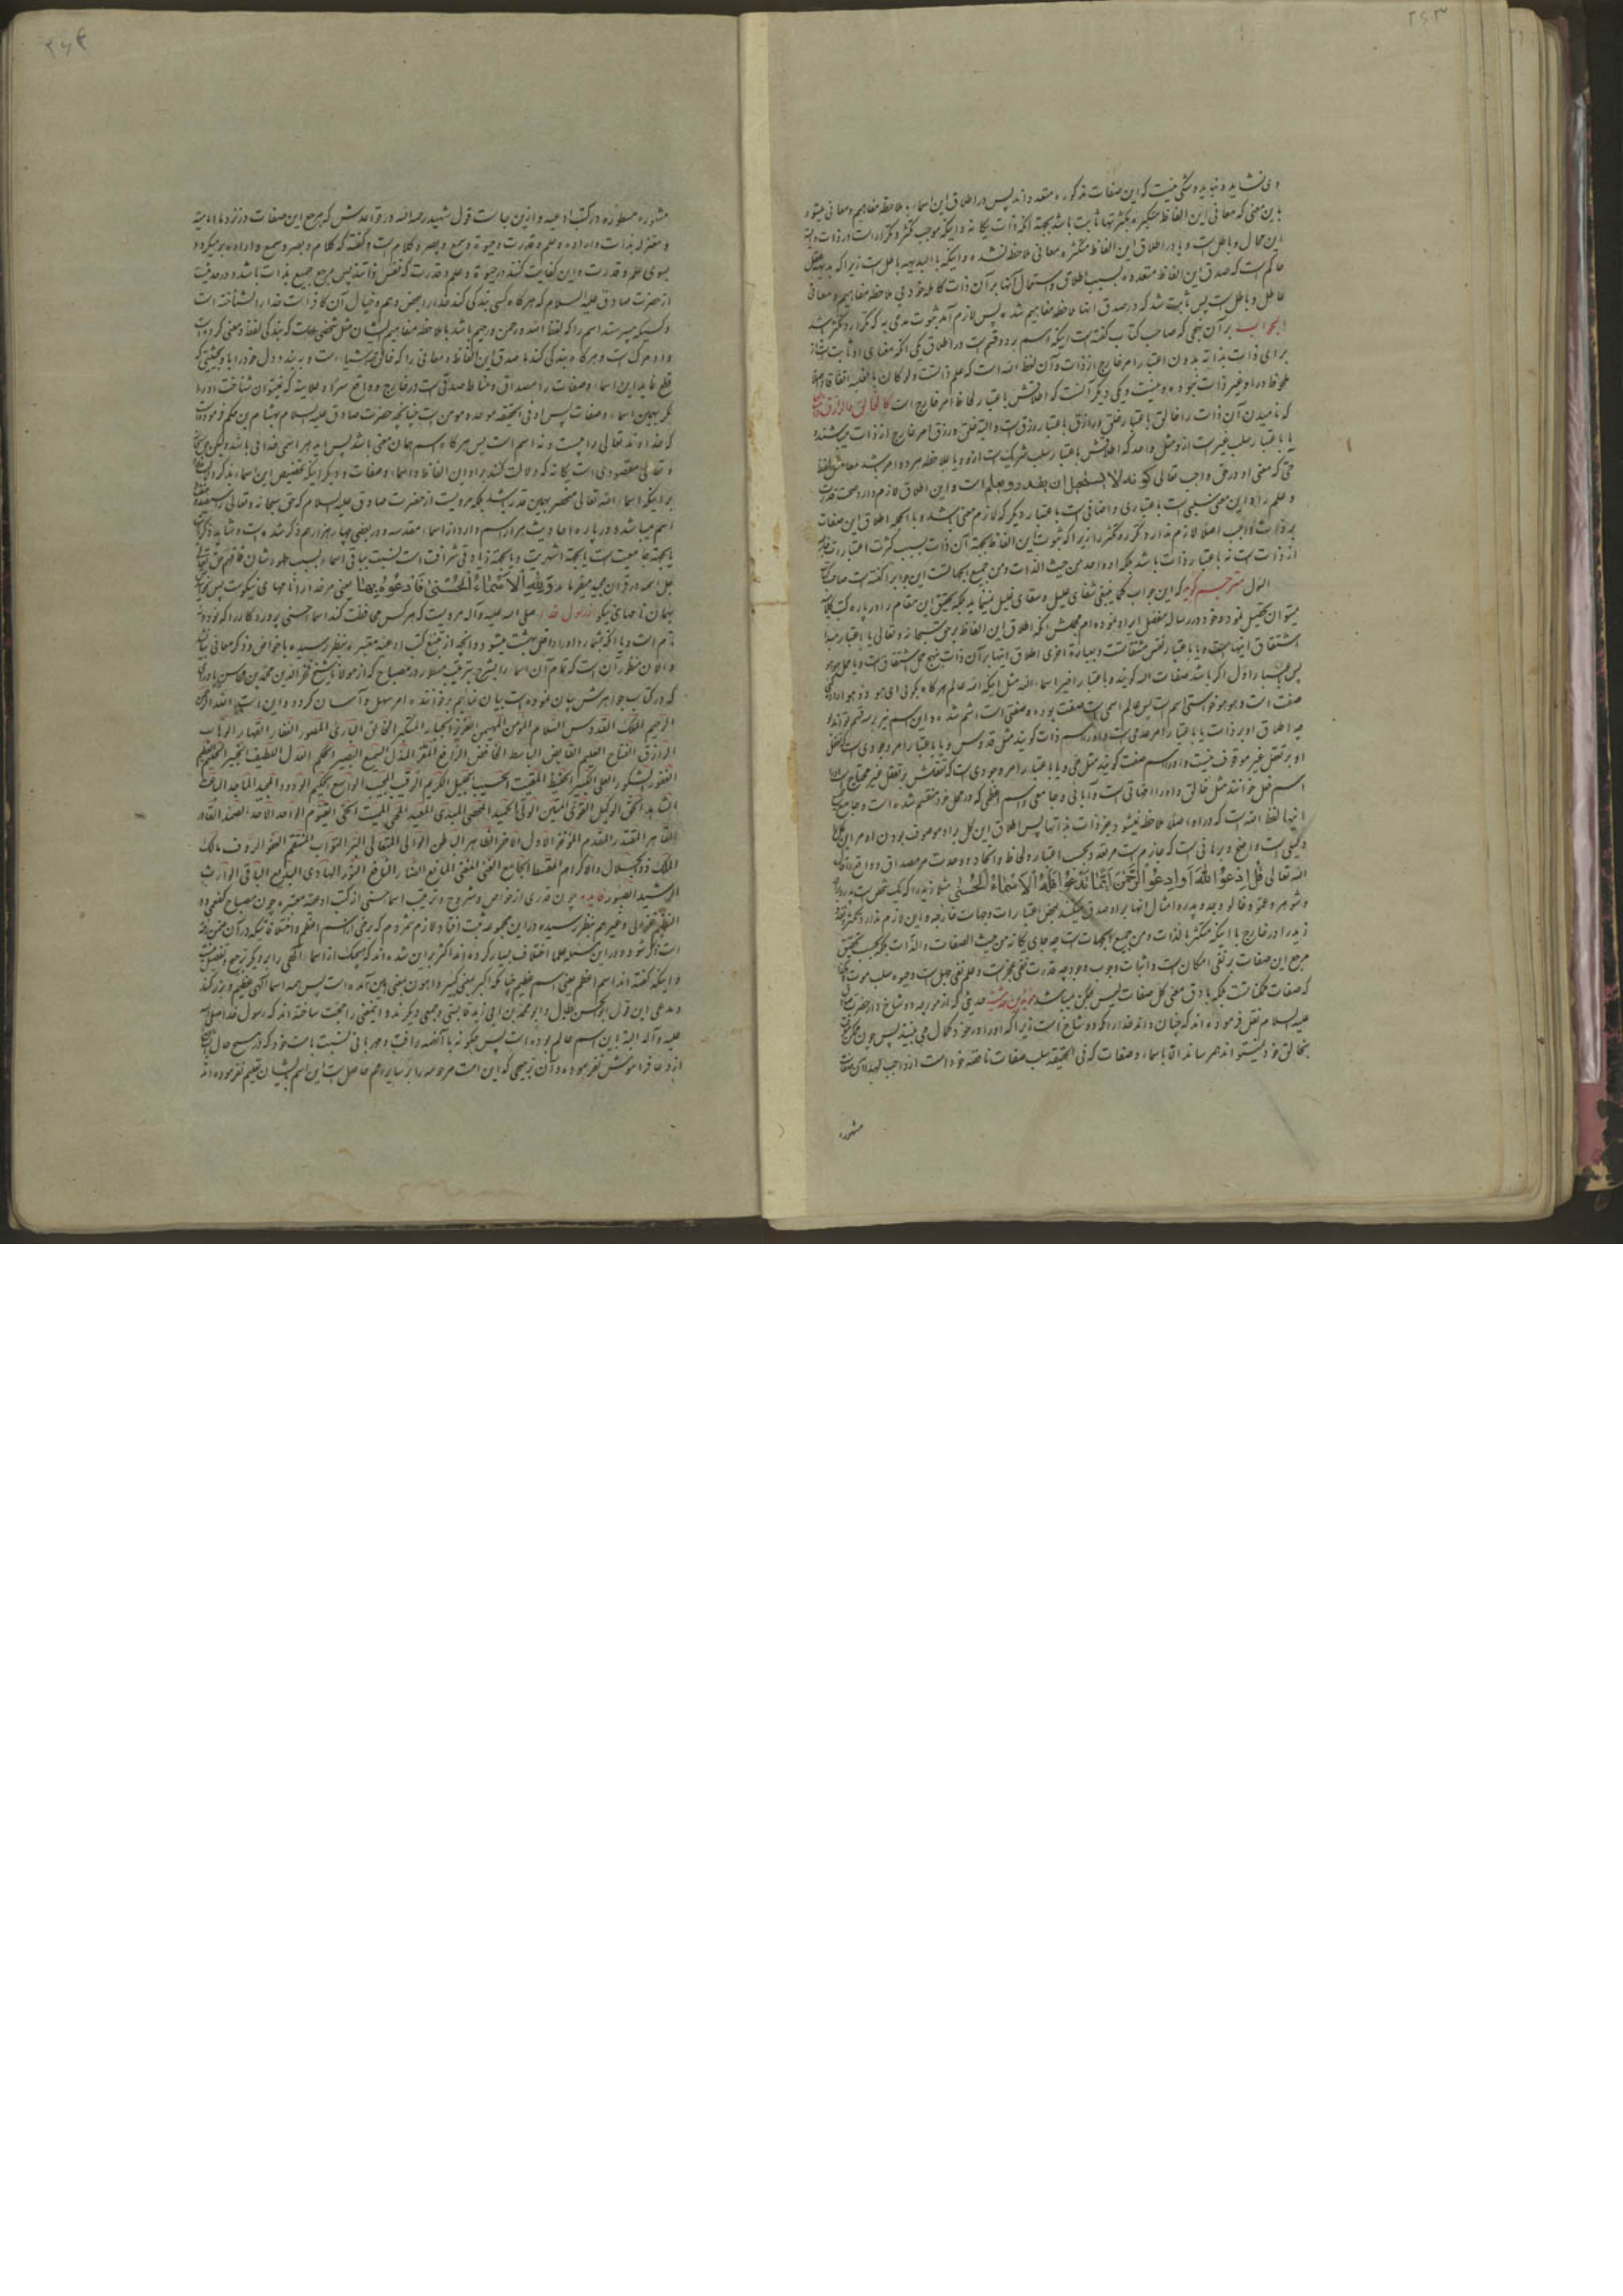 ۲۶۳
و نمی‌شاید و نباید و شکی نیست که این صفات مذکوره متعدد اند پس در اطلاق این اسماء با ملاحظه مفاهیم و معانی میشود
باین معنی که معانی این الفاظ
این محال و باطل است و یا در اطلاق این الفاظ متکثره معانی ملاحظ نشده و اینکه بالبدیهه باطل است زیرا که
حاکم است که صدق این الفاظ متعدده بسبب اطلاق و استعمال آنها بر آن ذات کامله خود بی ملاحظه مفاهیم و معانی
عاطل و باطل است پس ثابت شد که در صدق انها ملاحظه مفاهیم شده پس لازم آمد ثبوت مدعی به که تکرار و تکثر باشد
الجواب بر آن نهجی که صاحب کتاب گفته است اینکه اسم بر دو قسم است در اطلاق یکی آنکه
برای ذات بذاته بدون اعتبار امر خارج از ذات و آن لفظ الله است که علم ذاتست
ملحوظ در او غیر ذات نبوده و نیست و یکی دیگر آنست که اطلاقش باعتبار لحاظ امر خارج است کالخالق والرازق
که نامیدن آن ذات را خالق باعتبار خلق و رازق باعتبار رزق است و البته خلق و رزق امر خارج از ذات میباشند
یا باعتبار سلب غیر است از او مثل واحد که اطلاقش باعتبار سلب شریک است از او و یا ملاحظه هر دو امر باشد
حی که معنی او در حق واجب تعالی کونه لا یستحیل ان یقدر و یعلم است و این اطلاق لازم دارد صحت قدرت
و علم را و این معنی سلبی است باعتباری و اضافی است باعتبار دیگر که لازم معنی باشد و بالجمله اطلاق این صفات
بر ذات واجب اصلا لازم ندارد تکرر و تکثر را زیرا که ثبوت این الفاظ بجهة آن ذات بسبب کثرت اعتبارات
از ذات است نه باعتبار ذات باشد بلکه او واحد من حیث الذات و من جمیع الجهاتست این جوابرا گفته است صاحب کتاب
اقول مترجم گوید که این جواب کما ینبغی شفای علیل و سقای غلیل نمینماید بلکه تحقیق این مقام را در پاره کتب کلامیه
میتوان تحصیل نمود و خود در رساله مفصل ایراد نموده ام مجملش آنکه اطلاق این الفاظ بر حق سبحانه و تعالی یا باعتبار مبدأ
اشتقاق اینها است و یا باعتبار نفس مشتقاتست و بعبارة اخری اطلاق اینها بر آن ذات بنهج حمل اشتقاق است و یا حمل هو هو
پس باعتبار اول اگر باشد صفات الله گویند و باعتبار اخیر اسماء الله مثل اینکه الله عالم هرگاه بگوئی ای هو ذو هو اراده
صفت است و هو هو خواستی اسم است پس عالم اسمی است صفت بوده و صفتی است اسم شده و این اسم نیز بر سه قسم تواند بود
چه اطلاق او بر ذات یا باعتبار امر عدمی است و او را اسم ذات گویند مثل قدوس و یا باعتبار امر وجودی است که تعقل
او بر تعقل غیر موقوف نیست و او را اسم صفت گویند مثل حی و یا باعتبار امر وجودی است که تعقلش بر تعقل غیر محتاج است او را
اسم فعل خوانند مثل خالق و او را اضافی است
اینها لفظ الله است که در او اصلا ملاحظه نمیشود بجز ذات بذاتها پس اطلاق این کل بر او و موصوف بودن او مر این کل را
دلیلی است واضح و برهانی است که جازم است مر تعدد بحسب اعتبار و لحاظ و اتحاد و وحدت مر مصداق و واقع را
الله تعالی قُلِ ادْعُوا اللّٰهَ اَوِ ادْعُوا الرَّحْمٰنَ اَیًّا مَا تَدْعُوا فَلَهُ الْاَسْمَاءُ الْحُسْنٰی مثلا زید را که یک شخص است پدر
و شوهر و عم و خالو و جد و پدر و امثال انها بر او صدق میکنند بمحض اعتبارات و جهات خارجه و این لازم ندارد تکثر
زید را در خارج با اینکه متکثر بالذات و من جمیع الجهات است چه جای یگانه من حیث الصفات و الذات بلکه بحسب تحقیق
مرجع این صفات بر نفی امکان است و اثبات وجوب وجود چه قدرت نفی عجز است و علم نفی جهل است و حیوة سلب موت
که صفات ممکناتست بلکه بادق معنی کل صفات لیس لیکن میباشد موید این مدعا است حدیثی که از مورچه دو شاخ دار حضرت صادق
علیه السلام نقل فرموده اند که چنان داند خدا را که دو شاخ است زیرا که او را در خود کمال می بیند پس چون ممکن
بخالق خود نمیتواند همرساند الا باسماء و صفات که فی الحقیقه سلب صفات ناقصه خود است از واجب لهذا آن صفات
مشهوره
۲۶۴
مشهوره مسطوره در کتب ادعیه و از این جا است قول شهید رحمه الله در قواعدش که مرجع این صفات در نزد ما امامیه
و معتزله بذات و اراده و علم و قدرت و حیوة و سمع و بصر و کلام است و گفته که کلام و بصر و سمع و اراده عاید میگردد
بسوی علم و قدرت و این کفایت کنند در حیوة و علم و قدرت که نفس ذاتند پس مرجع جمیع بذات باشد و در حدیث
از حضرت صادق علیه السلام که هر گاه کسی بندگی کند خدا را بمحض وهم و خیال آن کافر است خدا را نشناخته است
و کسیکه میپرستد اسم را که لفظ الله و رحمن و رحیم باشد با ملاحظه مفاهیم ایشان مثل شخصی است که بندگی لفظ و معنی کرده است
و او مشرک است و هر گاه بندگی کند با صدق این الفاظ و معانی را که خالق اشیاء است و ببندد دل خود را باو بحیثیتی که
قطع نماید این اسماء و صفات را بمصداق و مناط صدقی است در خارج و واقع سرا و علانیة که نمیتوان شناخت او را
مگر بهمین اسماء و صفات پس او فی الحقیقه موحد و مومن است چنانچه حضرت صادق علیه السلام بهشام بن حکم فرموده
که خداوند تعالی را بیست و نه اسم است پس هر گاه اسم همان معنی باشد پس اید هر اسمی خدائی باشد و لیکن حق سبحانه
و تعالی مقصودی است یگانه که دلالت کنند بر او این الفاظ و اسماء و صفات و دیگر اینکه تخصیص این اسماء بذکر
بر اینکه اسماء الله تعالی منحصر بهمین قدر باشد بلکه مرویست از حضرت صادق علیه السلام که حق سبحانه و تعالی را سیصد و شصت
اسم میباشد و در پاره احادیث هزار اسم وارد از اسماء مقدسه و در بعضی چهار هزار هم ذکر شده است و شاید ذکر
یا بجهة جامعیت است یا بجهة اشهریت و یا بجهة زیادتی شرافت است نسبت بباقی اسماء بسبب ظهور شان
جل اسمه در قرآن مجید میفرماید وَلِلّٰهِ الْاَسْمَاءُ الْحُسْنٰی فَادْعُوهُ بِهَا یعنی مر خدا را نامهای نیکوست پس بخوانید
بهمان نامهای نیکو از رسول خدا صلی الله علیه و آله مرویست که هر کس محافظت کند اسماء حسنی پروردگار را که نود و نه
نام است و یا آنکه بشمارد او را داخل بهشت میشود و آنچه از تتبع کتب ادعیه معتبره بنظر رسیده با خواص و ذکر معانی
و الان منظور آن است که تمام آن اسماء را بشرح و ترتیب مسطور در مصباح که از مولانا شیخ فخر الدین محمد بن محاسن
که در کتاب جواهرش بیان نموده است بیان نمایم بر خواننده امر سهل و آسان گردد و این است الله الرحمن
الرحیم الملک القدوس السلام المؤمن المهیمن العزیز الجبار المتکبر الخالق البارئ المصور الغفار القهار الوهاب
الرازق الفتاح العلیم القابض الباسط الخافض الرافع المعز المذل السمیع البصیر الحکم العدل اللطیف الخبیر الحلیم العظیم
الغفور الشکور العلی الکبیر الحفیظ المقیت الحسیب الجلیل الکریم الرقیب المجیب الواسع الحکیم الودود المجید الماجد الباعث
الشاهد الحق الوکیل القوی المتین الولی الحمید المحصی المبدئ المعید المحیی الممیت الحی القیوم الواحد الاحد الصمد القادر
القاهر المقتدر المقدم المؤخر الاول الاخر الظاهر الباطن الوالی المتعالی البر التواب المنتقم العفو الرؤف مالک
الملک ذو الجلال والاکرام المقسط الجامع الغنی المغنی المانع الضار النافع النور الهادی البدیع الباقی الوارث
الرشید الصبور فایده چون قدری از خواص و شروح و ترتیب اسماء حسنی از کتب ادعیه معتبره چون مصباح کفعمی و
النظیم غزالی و غیرهم بنظر رسیده در این مجموعه ثبت افتاد لازم شمردم که برخی از اسم اعظم و اختلافاتیکه در آن متن رفته
است ذکر شود و در این مسئله علماء اختلاف بسیار کرده اند اکثر بر این شده اند که هیچیک از اسماء الهی را بر دیگر ترجیح و تفضیل نیست
و اینکه گفته اند اسم اعظم یعنی اسم عظیم چنانکه اکبر بمعنی کبیر و اهون بمعنی هین آمده است پس همه اسماء الهی عظیم و بزرگند
و مدعی این قول ابو الحسن بطال و ابو محمد بن ابی زید قابسی و جمعی دیگرند و اینمعنی را حجت ساخته اند که رسول خدا صلی الله
علیه و آله البته باین اسم عالم بوده است پس چگونه با آنهمه رأفت و مهربانی نسبت بامت خود که در هیچ حال ایشان را
از دعا فراموش نفرموده و آن ترجیحی که این امت مرحومه را بر سایر امم حاصل است این اسم بایشان تعلیم نفرموده اند